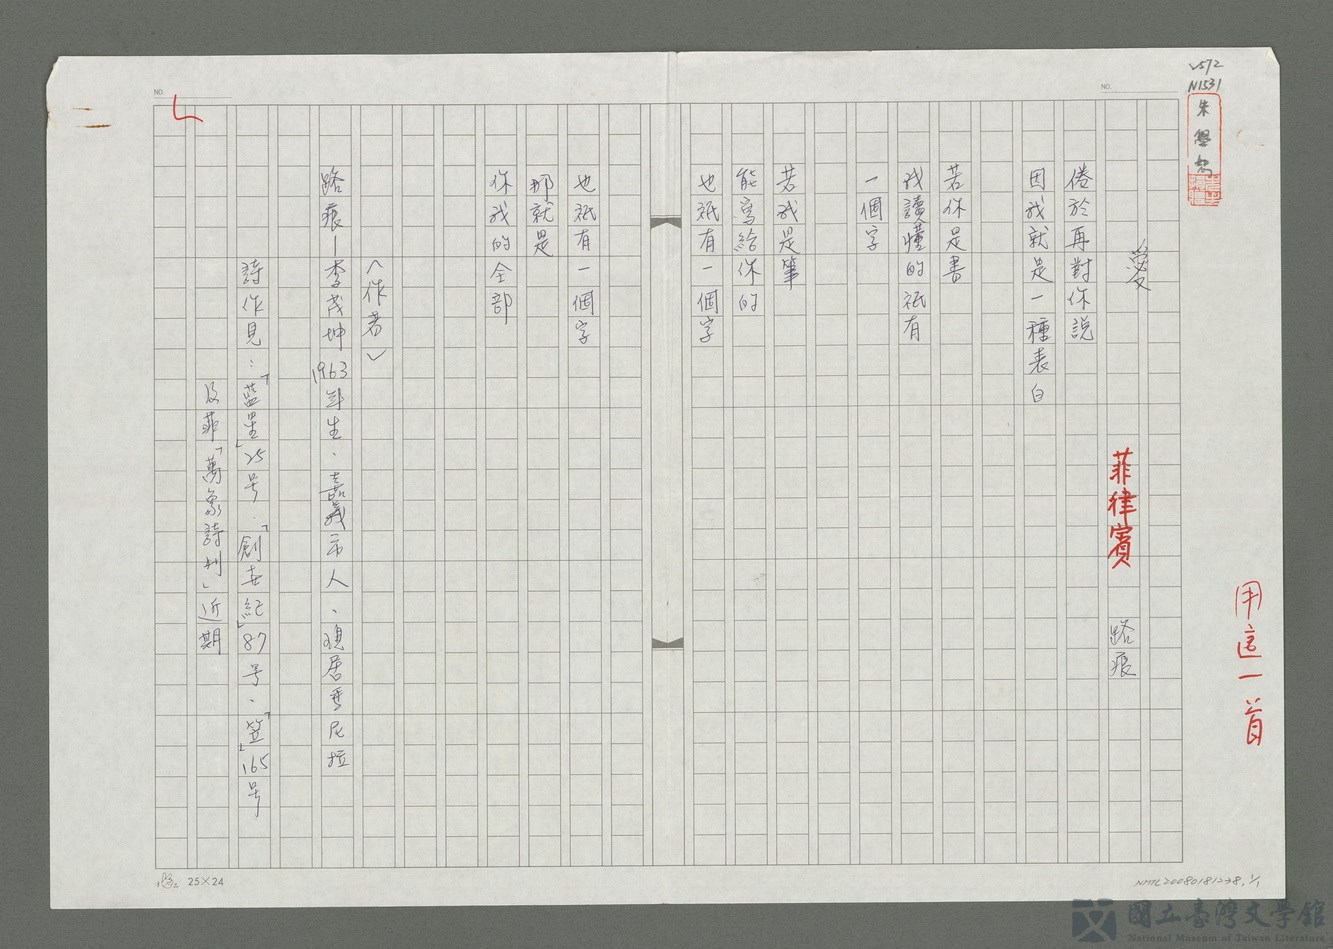 2572
N1531
用這一首
愛
菲律賓 路痕
倦於再對你說
因我就是一種表白
若你是書
我讀懂的祇有
一個字
若我是筆
能寫給你的
也祇有一個字
也祇有一個字
那就是
你我的全部
〈作者〉
路痕—李茂坤1963年生、嘉義市人、現居馬尼拉
詩作見：「藍星」25号、「創世紀」87号、「笠」165号
及菲「萬象詩刊」近期
NO.
NO.
25×24
NMTL20080181238,1/1
國立臺灣文學館
National Museum of Taiwan Literature